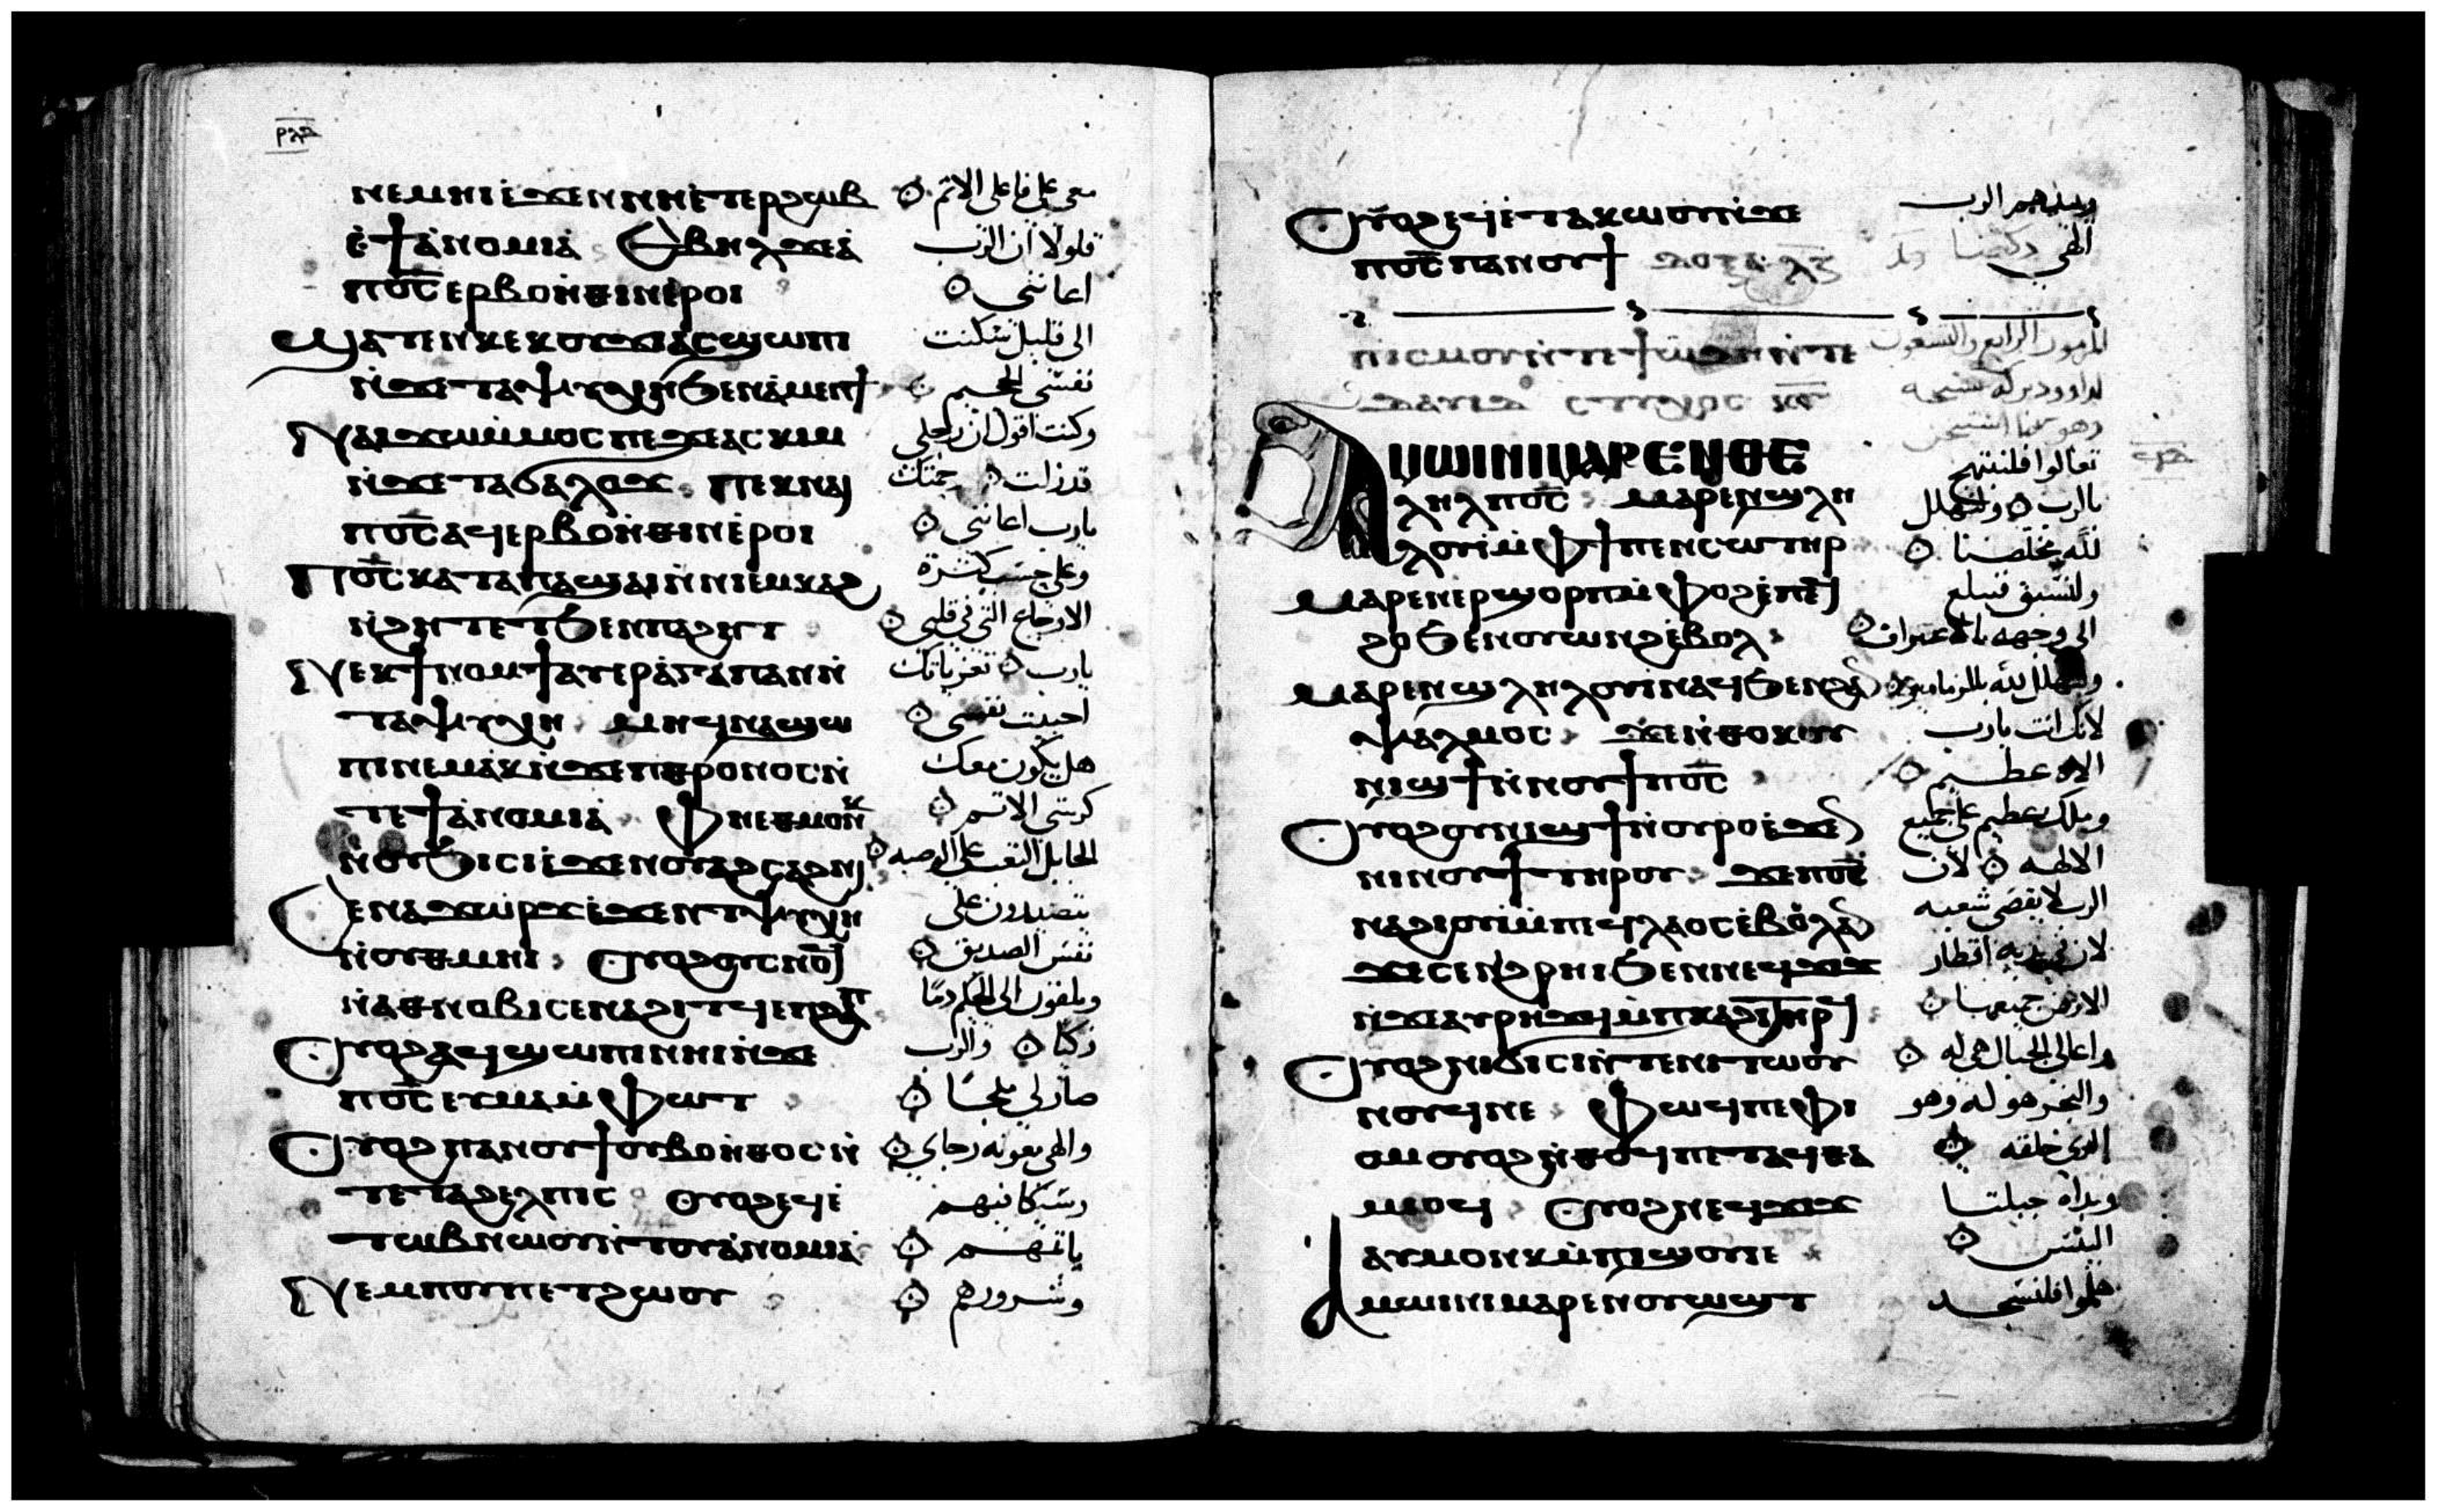 ⲣⲗⲃ
ⲛⲉⲙⲏⲓ ⲉϫⲉⲛ ⲛⲏⲉⲧⲉⲣϩⲱⲃ معي على فاعلي الاثم
ⲉϯⲁⲛⲟⲙⲓⲁ ⲉⲃⲏⲗ ϫⲉ ⲁ فلولا ان الرب
ⲡⲟ̅ⲥ̅ ⲉⲣⲃⲟⲏⲑⲓⲛ ⲉⲣⲟⲓ اعانني
ϣⲁⲧⲉⲛ ⲕⲉⲕⲟⲩϫⲓ ⲁⲥϣⲱⲡⲓ الى قليل سكنت
ⲛϫⲉ ⲧⲁⲯⲩⲭⲏ ϧⲉⲛ ⲁⲙⲉⲛϯ نفسي الجحيم
ⲛⲁⲓϫⲱ ⲙⲙⲟⲥ ⲡⲉ ϫⲉ ⲁⲥⲕⲓⲙ وكنت اقول ان رجلي
ⲛϫⲉ ⲧⲁϭⲁⲗⲟϫ ⲡⲉⲕⲛⲁⲓ قد زلت رحمتك
ⲡⲟ̅ⲥ̅ ⲁϥⲉⲣⲃⲟⲏⲑⲓⲛ ⲉⲣⲟⲓ يارب اعانتني
ⲡⲟ̅ⲥ̅ ⲕⲁⲧⲁ ⲡⲁϣⲁⲓ ⲛⲛⲓⲉⲙⲕⲁϩ وعلى حسب كثرة
ⲛϩⲏⲧ ⲉⲧϧⲉⲛ ⲡⲁϩⲏⲧ الاوجاع التي في قلبي
ⲛⲉⲕϯⲛⲟⲙϯ ⲁⲩⲉⲣⲁⲅⲁⲡⲁⲛ ⲛ يارب تعزياتك
ⲧⲁⲯⲩⲭⲏ ⲙⲏ ϥⲛⲁϣⲱ احبت نفسي
ⲡⲓ ⲛⲉⲙⲁⲕ ⲛϫⲉ ⲡⲉⲑⲣⲟⲛⲟⲥ ⲛ هل يكون معك
ⲧⲉ ϯⲁⲛⲟⲙⲓⲁ ⲫⲏⲉⲑⲙⲟⲛⲕ كرسي الاثم
ⲛⲟⲩϧⲓⲥⲓ ⲉϫⲉⲛ ⲟⲩⲁϩⲥⲁϩⲛⲓ الجابل التعب على الوصيه
ⲥⲉⲛⲁϫⲱⲣϫ ⲉϫⲉⲛ ⲧⲯⲩⲭⲏ يتصيدون على
ⲛⲟⲩⲑⲙⲏⲓ ⲟⲩⲟϩ ⲟⲩⲥⲛⲟϥ نفس الصديق
ⲛⲁⲑⲛⲟⲃⲓ ⲥⲉⲛⲁϩⲓⲧϥ ⲉⲡϩⲁⲡ ويلقون الى الحكم دمًا
ⲟⲩⲟϩ ⲁϥϣⲱⲡⲓ ⲛⲏⲓ ⲛϫⲉ زكيا والرب
ⲡⲟ̅ⲥ̅ ⲉⲩⲙⲁ ⲙⲫⲱⲧ صار لي ملجًا
ⲟⲩⲟϩ ⲡⲁⲛⲟⲩϯ ⲟⲩⲃⲟⲏⲑⲟⲥ ⲛ والهي معونه رجاي
ⲧⲉ ⲧⲁϩⲉⲗⲡⲓⲥ ⲟⲩⲟϩ ⲉϥⲉ وسيكافيهم
ⲧⲱⲃ ⲛⲱⲟⲩ ⲛⲧⲟⲩⲁⲛⲟⲙⲓⲁ باثمهم
ⲛⲉⲙ ⲡⲟⲩⲡⲉⲧϩⲱⲟⲩ وشرورهم
ⲟⲩⲟϩ ⲉϥⲉⲧⲁⲕⲱⲟⲩ ⲛϫⲉ ويبيدهم الرب
ⲡⲟ̅ⲥ̅ ⲡⲁⲛⲟⲩϯ ⲇⲟⲝⲁ الهي
ⲡⲓⲥⲙⲟⲩ ⲛⲧⲉ ϯϩⲱⲇⲏ ⲛⲧⲉ المزمور الرابع والتسعون
ⲇⲁⲩⲓⲇ ⲥⲧⲩⲭⲟⲥ لداوود بركة تسبحه
ⲁⲙⲱⲓⲛⲓ ⲙⲁⲣⲉⲛⲑⲉ تعالوا فلنبتهج
ⲗⲏⲗ ⲡⲟ̅ⲥ̅ ⲙⲁⲣⲉⲛϣⲗⲏ بالرب ولنهلل
ⲗⲟⲩⲓ ⲙⲫϯ ⲡⲉⲛⲥⲱⲧⲏⲣ لله مخلصنا
ⲙⲁⲣⲉⲛⲉⲣϣⲟⲣⲡ ⲙⲫⲟϩ ⲉⲡⲉϥ ولنسبق فنبلغ
ϩⲟ ϧⲉⲛ ⲟⲩⲱⲛϩ ⲉⲃⲟⲗ الى وجهه بالاعتراف
ⲙⲁⲣⲉⲛϣⲗⲏⲗⲟⲩⲓ ⲛⲁϥ ϧⲉⲛ ϩⲁⲛ ونهلل لله بالمزامير
ⲯⲁⲗⲙⲟⲥ ϫⲉ ⲛⲑⲟⲕ ⲟⲩ لانك انت يارب
ⲛⲓϣϯ ⲛⲛⲟⲩϯ ⲡⲟ̅ⲥ̅ الاه عظيم
ⲟⲩⲟϩ ⲟⲩⲛⲓϣϯ ⲛⲟⲩⲣⲟ ⲉϫⲉⲛ وملك عظيم على جميع
ⲛⲓⲛⲟⲩϯ ⲧⲏⲣⲟⲩ ϫⲉ ⲡⲟ̅ⲥ̅ الالهه لان
ⲛⲁϩⲓⲟⲩⲓ ⲙⲡⲉϥⲗⲁⲟⲥ ⲉⲃⲟⲗ ⲁⲛ الرب لا يقصي شعبه
ϫⲉ ⲥⲉⲛϩⲣⲏⲓ ϧⲉⲛ ⲛⲉϥϫⲓϫ لان في يديه اقطار
ⲛϫⲉ ⲁⲩⲣⲏϫϥ ⲙⲡⲕⲁϩⲓ ⲧⲏⲣϥ الارض جميعها
ⲟⲩⲟϩ ⲛⲓϭⲓⲥⲓ ⲛⲧⲉ ⲛⲓⲧⲱⲟⲩ واعالي الجبال هي له
ⲛⲟⲩϥ ⲛⲉ ⲫⲱϥ ⲡⲉ ⲫⲓ والبحر هو له وهو
ⲟⲙ ⲟⲩⲟϩ ⲛⲑⲟϥ ⲡⲉⲧⲁϥⲑⲁ الذي خلقه
ⲙⲓⲟϥ ⲟⲩⲟϩ ⲛⲉϥϫⲓϫ ويداه جبلتا
ⲁⲩⲙⲟⲛⲕ ⲙⲡⲓϣⲟⲩⲓⲉ اليبس
ⲁⲙⲱⲓⲛⲓ ⲙⲁⲣⲉⲛⲟⲩⲱϣⲧ هلموا فلنسجد